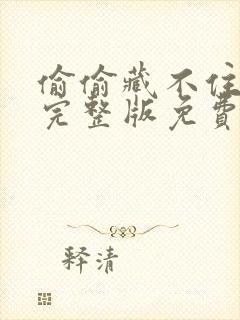 偷偷藏不住
完整版免費
释清